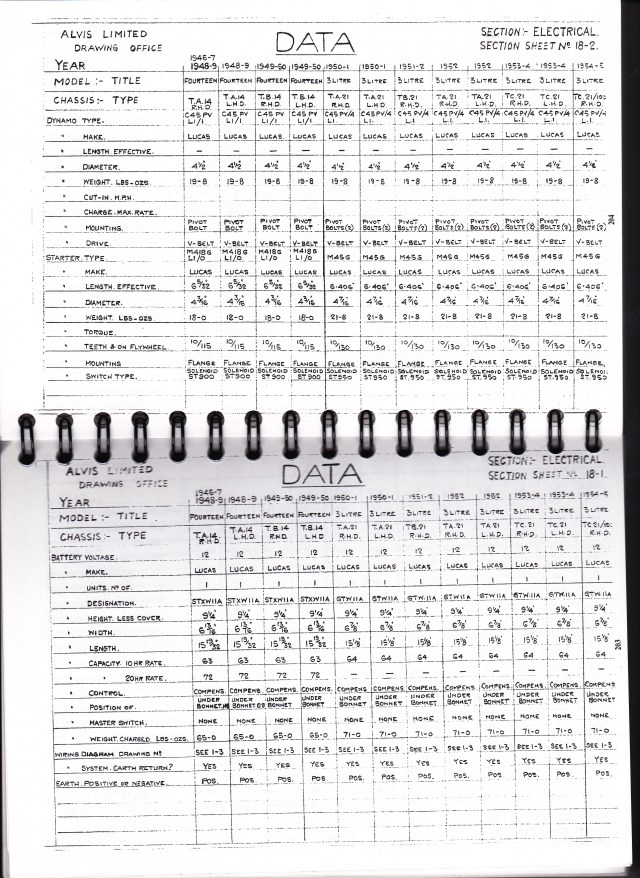 ALVIS LIMITED
DRAWING OFFICE
DATA
SECTION:- ELECTRICAL.
SECTION SHEET Nº 18-2.
YEAR 1946-7 1948-9 1948-9 1949-50 1949-50 1950-1 1950-1 1951-2 1952 1952 1953-4 1953-4 1954-5
MODEL:- TITLE FOURTEEN FOURTEEN FOURTEEN FOURTEEN 3 LITRE 3 LITRE 3 LITRE 3 LITRE 3 LITRE 3 LITRE 3 LITRE 3 LITRE
CHASSIS:- TYPE T.A.14 R.H.D. T.A.14 L.H.D. T.B.14 R.H.D. T.B.14 L.H.D. T.A.21 R.H.D. T.A.21 L.H.D. TB.21 R.H.D. TA.21 R.H.D. TA.21 L.H.D. TC.21 R.H.D. TC.21 L.H.D. TC.21/100 R.H.D.
DYNAMO TYPE. C45 PV L1/1 C45 PV L1/1 C45 PV L1/1 C45 PV L1/1 C45 PV/4 L.1. C45 PV/4 L.1. C45 PV/4 L.1. C45 PV/4 L.1. C45 PV/4 L.1. C45 PV/4 L.1. C45 PV/4 L.1. C45 PV/4 L.1.
" MAKE. LUCAS LUCAS LUCAS. LUCAS LUCAS LUCAS LUCAS LUCAS LUCAS LUCAS LUCAS LUCAS
" LENGTH. EFFECTIVE. – – – – – – – – – – – –
" DIAMETER. 4½ 4½ 4½ 4½ 4½ 4½ 4½ 4½ 4½ 4½ 4½ 4½
" WEIGHT. LBS-OZS. 19-8 19-8 19-8 19-8 19-8 19-8 19-8 19-8 19-8 19-8 19-8 19-8
" CUT-IN. M.P.H.
" CHARGE. MAX. RATE.
" MOUNTING. PIVOT BOLT PIVOT BOLT PIVOT BOLT PIVOT BOLT PIVOT BOLTS(2) PIVOT BOLTS(2) PIVOT BOLTS(2) PIVOT BOLTS(2) PIVOT BOLTS(2) PIVOT BOLTS(2) PIVOT BOLTS(2) PIVOT BOLTS(2)
" DRIVE. V-BELT V-BELT V-BELT V-BELT V-BELT V-BELT V-BELT V-BELT V-BELT V-BELT V-BELT V-BELT
STARTER. TYPE M418G L1/0 M418G L1/0 M418G L1/0 M418G L1/0 M45G M45G M45G M45G M45G M45G M45G M45G
" MAKE. LUCAS LUCAS LUCAS LUCAS LUCAS LUCAS LUCAS LUCAS LUCAS LUCAS LUCAS LUCAS
" LENGTH. EFFECTIVE. 6 5/32 6 5/32 6 5/32 6 5/32 6·406" 6·406" 6·406" 6·406" 6·406" 6·406" 6·406" 6·406"
" DIAMETER. 4 3/16 4 3/16 4 3/16 4 3/16 4 7/16 4 7/16 4 7/16 4 7/16 4 7/16 4 7/16 4 7/16 4 7/16
" WEIGHT LBS-OZS. 18-0 18-0 18-0 18-0 21-8 21-8 21-8 21-8 21-8 21-8 21-8 21-8
" TORQUE.
" TEETH & ON FLYWHEEL 10/115 10/115 10/115 10/115 10/130 10/130 10/130 10/130 10/130 10/130 10/130 10/130
" MOUNTING FLANGE FLANGE FLANGE FLANGE FLANGE FLANGE FLANGE FLANGE FLANGE FLANGE FLANGE FLANGE.
" SWITCH TYPE. SOLENOID ST900 SOLENOID ST900 SOLENOID ST.900 SOLENOID ST.900 SOLENOID ST.950 SOLENOID ST.950 SOLENOID ST.950 SOLENOID ST.950 SOLENOID ST.950 SOLENOID ST.950 SOLENOID ST.950 SOLENOID ST.950
204
ALVIS LIMITED
DRAWING OFFICE
DATA
SECTION:- ELECTRICAL.
SECTION SHEET Nº 18-1.
YEAR 1946-7 1948-9 1948-9 1949-50 1949-50 1950-1 1950-1 1951-2 1952 1952 1953-4 1953-4 1954-5
MODEL:- TITLE FOURTEEN FOURTEEN FOURTEEN FOURTEEN 3 LITRE 3 LITRE 3 LITRE 3 LITRE 3 LITRE 3 LITRE 3 LITRE 3 LITRE
CHASSIS:- TYPE T.A.14 R.H.D. T.A.14 L.H.D. T.B.14 R.H.D. T.B.14 L.H.D. T.A.21 R.H.D. T.A.21 L.H.D. TB.21 R.H.D. TA.21 R.H.D. TA.21 L.H.D. TC.21 R.H.D. TC.21 L.H.D. TC.21/100 R.H.D.
BATTERY VOLTAGE. 12 12 12 12 12 12 12 12 12 12 12 12
" MAKE. LUCAS LUCAS LUCAS LUCAS LUCAS LUCAS LUCAS LUCAS LUCAS LUCAS LUCAS LUCAS
" UNITS. Nº OF. 1 1 1 1 1 1 1 1 1 1 1 1
" DESIGNATION. STXW11A STXW11A STXW11A STXW11A GTW11A GTW11A GTW11A GTW11A GTW11A GTW11A GTW11A GTW11A
" HEIGHT. LESS COVER. 9¼" 9¼" 9¼" 9¼" 9¼" 9¼" 9¼" 9¼" 9¼" 9¼" 9¼" 9¼"
" WIDTH. 6 13/16" 6 13/16" 6 13/16" 6 13/16" 6⅞ 6⅞ 6⅞ 6⅞ 6⅞ 6⅞ 6⅞ 6⅞
" LENGTH. 15 19/32" 15 19/32" 15 19/32" 15 19/32" 15⅛" 15⅛" 15⅛" 15⅛" 15⅛" 15⅛" 15⅛" 15⅛"
" CAPACITY 10 HR RATE. 63 63 63 63 64 64 64 64 64 64 64 64
" " 20 HR RATE. 72 72 72 72 – – – – – – – –
" CONTROL. COMPENS. COMPENS. COMPENS. COMPENS. COMPENS. COMPENS. COMPENS. COMPENS. COMPENS. COMPENS. COMPENS. COMPENS.
" POSITION OF. UNDER BONNET UNDER BONNET UNDER BONNET UNDER BONNET UNDER BONNET UNDER BONNET UNDER BONNET UNDER BONNET UNDER BONNET UNDER BONNET UNDER BONNET UNDER BONNET
" MASTER SWITCH. NONE NONE NONE NONE NONE NONE NONE NONE NONE NONE NONE NONE
" WEIGHT. CHARGED LBS-OZS. 65-0 65-0 65-0 65-0 71-0 71-0 71-0 71-0 71-0 71-0 71-0 71-0
WIRING DIAGRAM DRAWING Nº SEE 1-3 SEE 1-3 SEE 1-3 SEE 1-3 SEE 1-3 SEE 1-3 SEE 1-3 SEE 1-3 SEE 1-3 SEE 1-3 SEE 1-3 SEE 1-3
" SYSTEM. EARTH RETURN? YES YES YES YES YES YES YES YES YES YES YES YES
EARTH. POSITIVE OR NEGATIVE. POS. POS. POS. POS. POS. POS. POS. POS. POS. POS. POS. POS.
203